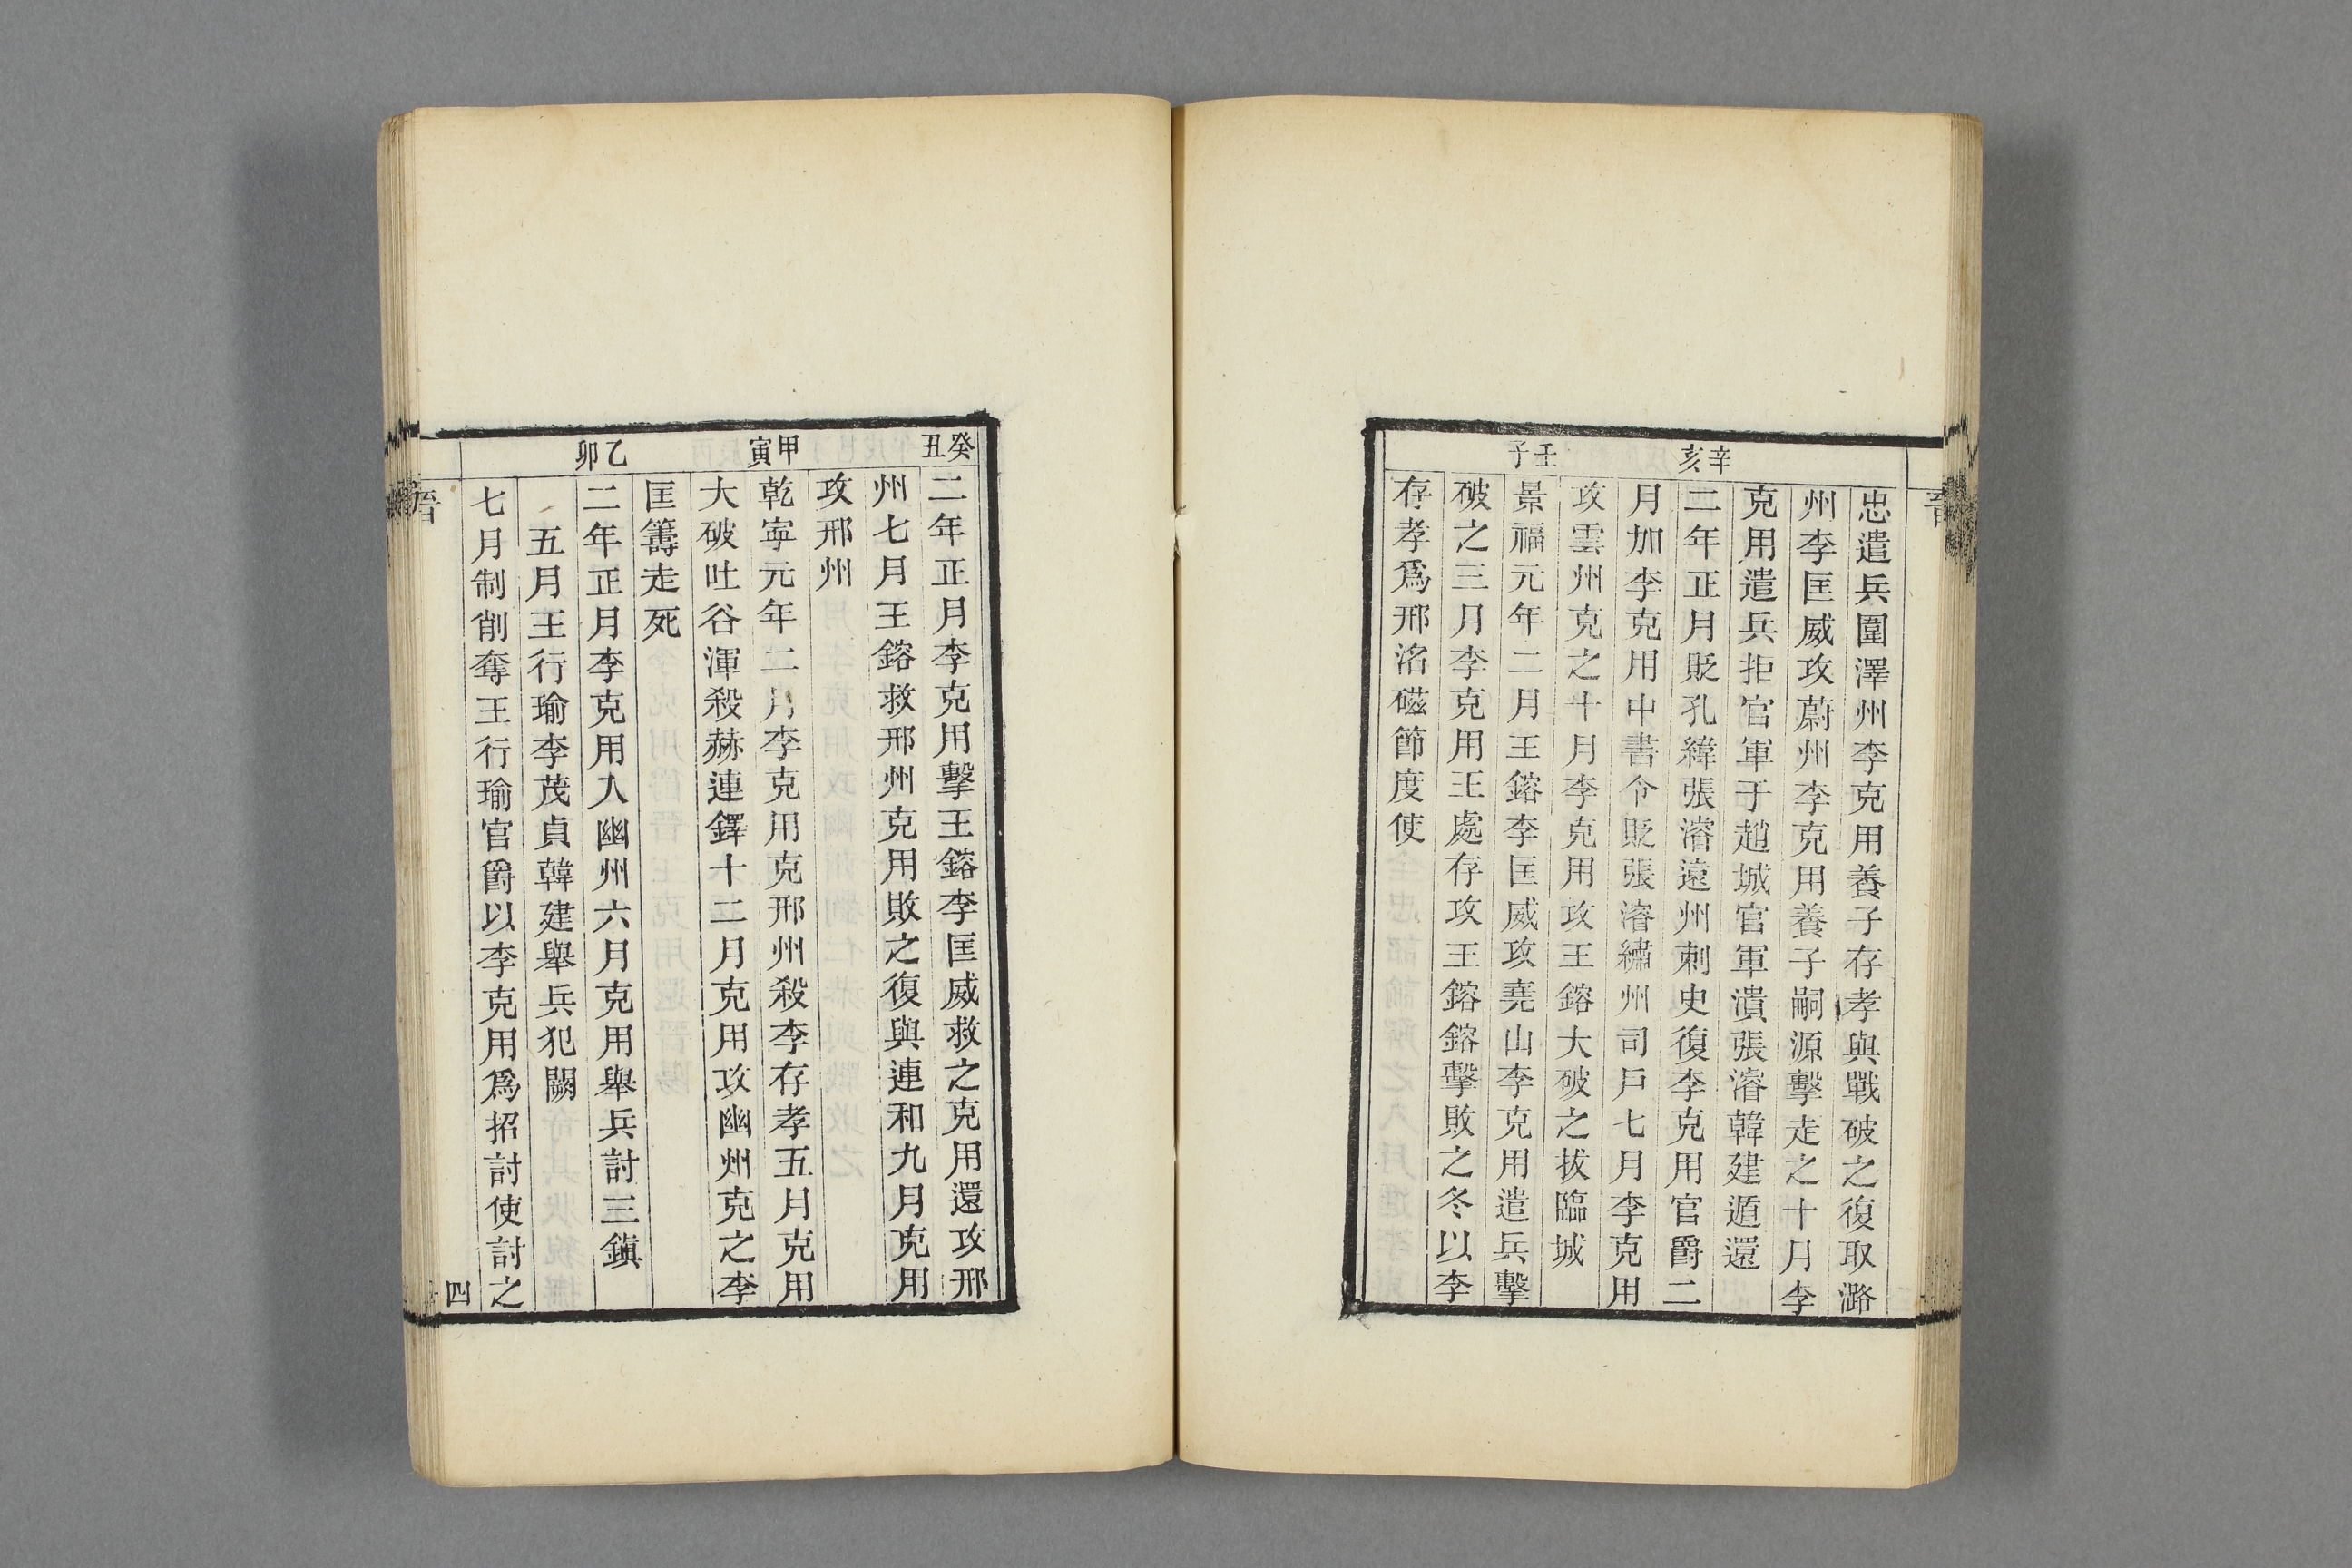 忠遣兵圍澤州李克用養子存孝與戰破之復取潞
州李匡威攻蔚州李克用養子嗣源擊走之十月李
克用遣兵拒官軍于趙城官軍潰張濬韓建遁還
辛亥
二年正月貶孔緯張濬遠州刺史復李克用官爵二
月加李克用中書令貶張濬繡州司戶七月李克用
攻雲州克之十月李克用攻王鎔大破之拔臨城
壬子
景福元年二月王鎔李匡威攻堯山李克用遣兵擊
破之三月李克用王處存攻王鎔鎔擊敗之冬以李
存孝爲邢洺磁節度使
癸丑
二年正月李克用擊王鎔李匡威救之克用還攻邢
州七月王鎔救邢州克用敗之復與連和九月克用
攻邢州
甲寅
乾寧元年二月李克用克邢州殺李存孝五月克用
大破吐谷渾殺赫連鐸十二月克用攻幽州克之李
匡籌走死
乙卯
二年正月李克用入幽州六月克用舉兵討三鎭
五月王行瑜李茂貞韓建舉兵犯闕
七月制削奪王行瑜官爵以李克用爲招討使討之
晉
四